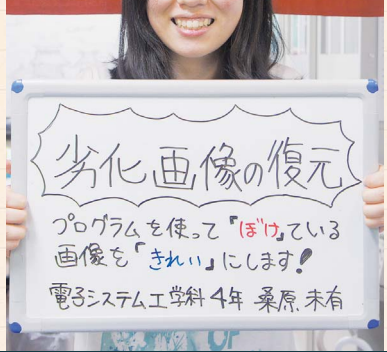 劣化画像の復元
プログラムを使って『ぼけ』ている
画像を「きれい」にします!
電子システム工学科4年 桑原 未有